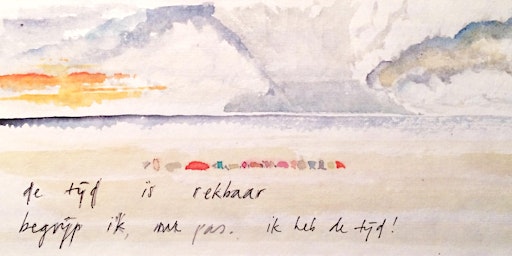 de tijd is rekbaar
begrijp ik, nu pas. ik heb de tijd!